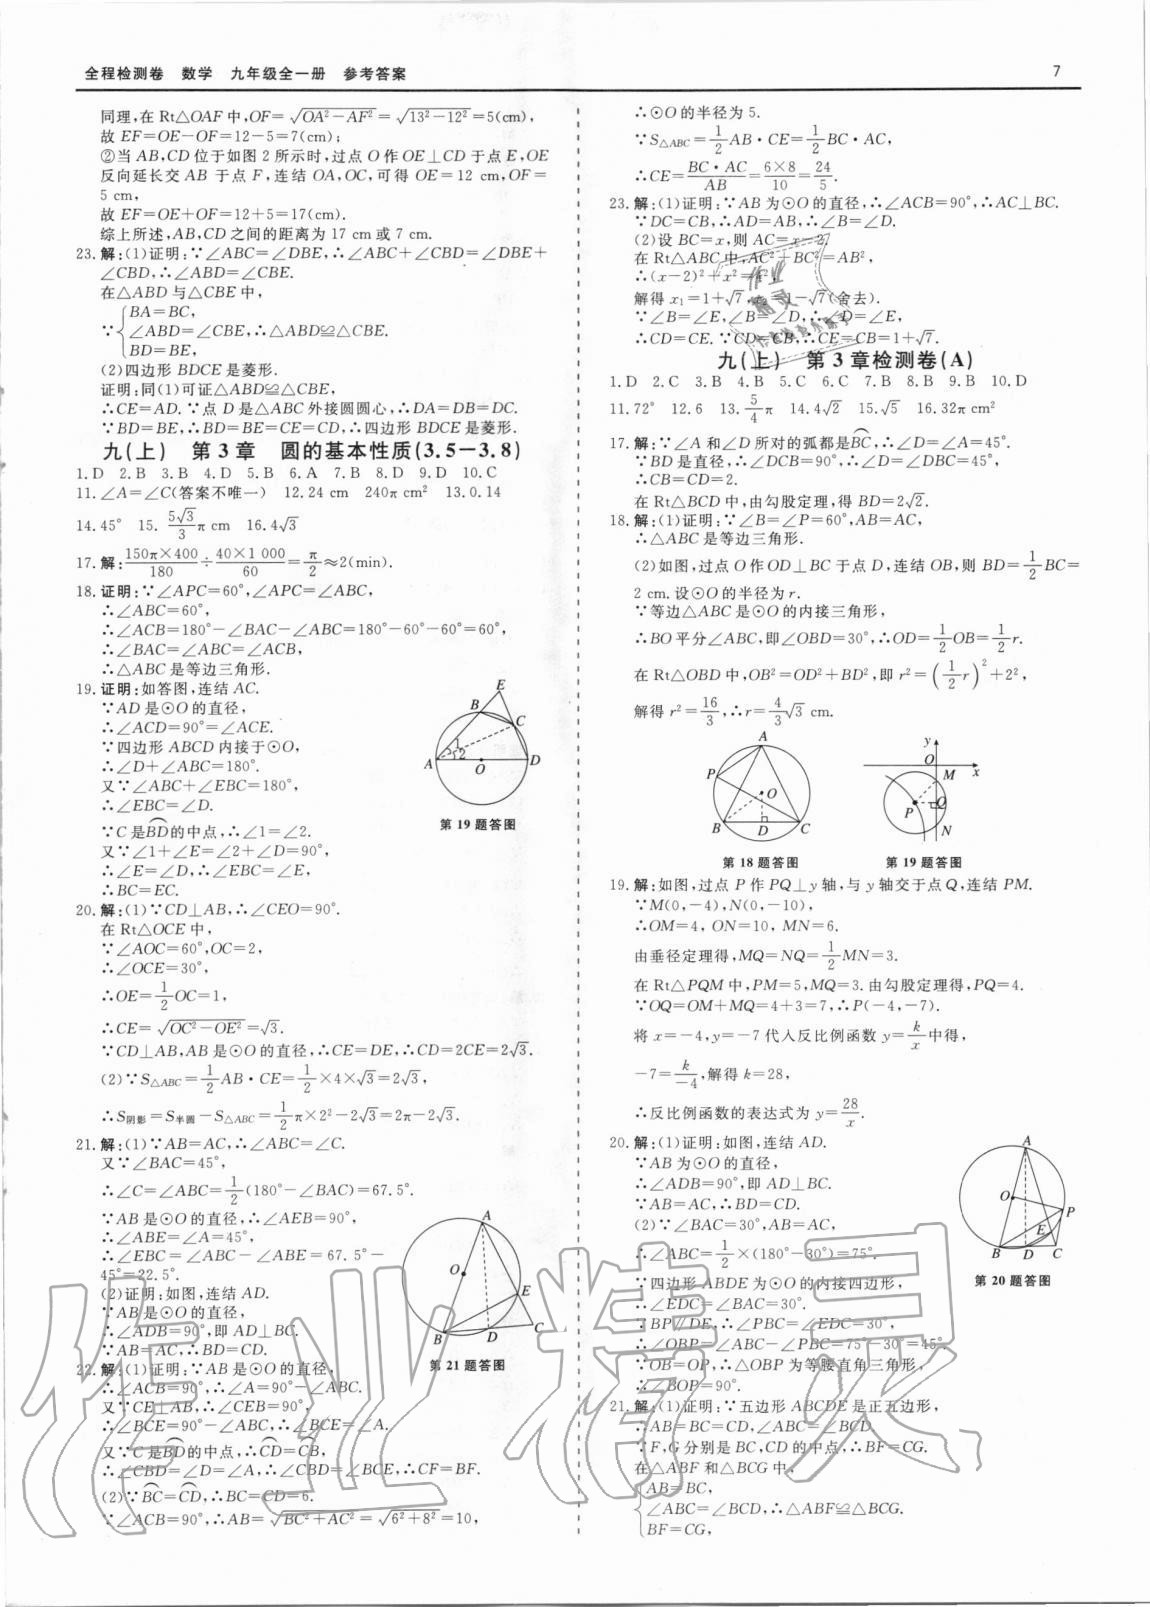 全程检测卷 数学 九年级全一册 参考答案
7
同理,在 Rt△OAF 中,OF=√(OA²-AF²)=√(13²-12²)=5(cm),
故 EF=OE-OF=12-5=7(cm);
②当 AB,CD 位于如图 2 所示时,过点 O 作 OE⊥CD 于点 E,OE
反向延长交 AB 于点 F,连结 OA,OC,可得 OE=12 cm,OF=
5 cm,
故 EF=OE+OF=12+5=17(cm).
综上所述,AB,CD 之间的距离为 17 cm 或 7 cm.
23. 解:(1)证明:∵∠ABC=∠DBE,∴∠ABC+∠CBD=∠DBE+
∠CBD,∴∠ABD=∠CBE.
在△ABD 与△CBE 中,
BA=BC,
∵{∠ABD=∠CBE,∴△ABD≌△CBE.
BD=BE,
(2)四边形 BDCE 是菱形.
证明:同(1)可证△ABD≌△CBE,
∴CE=AD.∵点 D 是△ABC 外接圆圆心,∴DA=DB=DC.
∵BD=BE,∴BD=BE=CE=CD,∴四边形 BDCE 是菱形.
九(上) 第 3 章 圆的基本性质(3.5-3.8)
1.D 2.B 3.B 4.D 5.B 6.A 7.B 8.D 9.D 10.C
11.∠A=∠C(答案不唯一) 12.24 cm 240π cm² 13.0.14
14.45° 15. 5√3/3 π cm 16.4√3
17. 解: 150π×400/180 ÷ 40×1 000/60 = π/2 ≈2(min).
18. 证明:∵∠APC=60°,∠APC=∠ABC,
∴∠ABC=60°,
∴∠ACB=180°-∠BAC-∠ABC=180°-60°-60°=60°,
∴∠BAC=∠ABC=∠ACB,
∴△ABC 是等边三角形.
19. 证明:如答图,连结 AC.
∵AD 是⊙O 的直径,
∴∠ACD=90°=∠ACE.
∵四边形 ABCD 内接于⊙O,
∴∠D+∠ABC=180°.
又∵∠ABC+∠EBC=180°,
∴∠EBC=∠D.
∵C 是BD的中点,∴∠1=∠2.
又∵∠1+∠E=∠2+∠D=90°,
∴∠E=∠D,∴∠EBC=∠E,
∴BC=EC.
E
B
C
1
2
A
O
D
第 19 题答图
20. 解:(1)∵CD⊥AB,∴∠CEO=90°.
在 Rt△OCE 中,
∵∠AOC=60°,OC=2,
∴∠OCE=30°,
∴OE=1/2 OC=1,
∴CE=√(OC²-OE²)=√3.
∵CD⊥AB,AB 是⊙O 的直径,∴CE=DE,∴CD=2CE=2√3.
(2)∵S△ABC=1/2 AB·CE=1/2×4×√3=2√3,
∴S阴影=S半圆-S△ABC=1/2 π×2²-2√3=2π-2√3.
21. 解:(1)∵AB=AC,∴∠ABC=∠C.
又∵∠BAC=45°,
∴∠C=∠ABC=1/2(180°-∠BAC)=67.5°.
∵AB 是⊙O 的直径,∴∠AEB=90°,
∴∠ABE=∠A=45°,
∴∠EBC=∠ABC-∠ABE=67.5°-
45°=22.5°.
(2)证明:如答图,连结 AD.
∵AB 是⊙O 的直径,
∴∠ADB=90°,即 AD⊥BC.
∵AB=AC,∴BD=CD.
A
O
E
B
D
C
第 21 题答图
22. 解:(1)证明:∵AB 是⊙O 的直径,
∴∠ACB=90°,∴∠A=90°-∠ABC.
又∵CE⊥AB,∴∠CEB=90°,
∴∠BCE=90°-∠ABC,∴∠BCE=∠A.
又∵C 是BD的中点,∴CD=CB,
∴∠CBD=∠D=∠A,∴∠CBD=∠BCE,∴CF=BF.
(2)∵BC=CD,∴BC=CD=6.
∵∠ACB=90°,∴AB=√(BC²+AC²)=√(6²+8²)=10,
∴⊙O 的半径为 5.
∵S△ABC=1/2 AB·CE=1/2 BC·AC,
∴CE=BC·AC/AB=6×8/10=24/5.
23. 解:(1)证明:∵AB 为⊙O 的直径,∴∠ACB=90°,∴AC⊥BC.
∵DC=CB,∴AD=AB,∴∠B=∠D.
(2)设 BC=x,则 AC=x-2.
在 Rt△ABC 中,AC²+BC²=AB²,
∴(x-2)²+x²=4²,
解得 x₁=1+√7,x₂=1-√7(舍去).
∵∠B=∠E,∠B=∠D,∴∠D=∠E,
∴CD=CE.∵CD=CB,∴CE=CB=1+√7.
九(上) 第 3 章检测卷(A)
1.D 2.C 3.B 4.B 5.C 6.C 7.B 8.B 9.B 10.D
11.72° 12.6 13. 5/4 π 14.4√2 15.√5 16.32π cm²
17. 解:∵∠A 和∠D 所对的弧都是BC,∴∠D=∠A=45°.
∵BD 是直径,∴∠DCB=90°,∴∠DBC=45°,
∴CB=CD=2.
在 Rt△BCD 中,由勾股定理,得 BD=2√2.
18. 解:(1)证明:∵∠B=∠P=60°,AB=AC,
∴△ABC 是等边三角形.
(2)如图,过点 O 作 OD⊥BC 于点 D,连结 OB,则 BD=1/2 BC=
2 cm.设⊙O 的半径为 r.
∵等边△ABC 是⊙O 的内接三角形,
∴BO 平分∠ABC,即∠OBD=30°,∴OD=1/2 OB=1/2 r.
在 Rt△OBD 中,OB²=OD²+BD²,即 r²=(1/2 r)²+2²,
解得 r²=16/3,∴r=4/3 √3 cm.
A
P
O
B
D
C
第 18 题答图
y
O
M
x
P
Q
N
第 19 题答图
19. 解:如图,过点 P 作 PQ⊥y 轴,与 y 轴交于点 Q,连结 PM.
∵M(0,-4),N(0,-10),
∴OM=4,ON=10,MN=6.
由垂径定理得,MQ=NQ=1/2 MN=3.
在 Rt△PQM 中,PM=5,MQ=3.由勾股定理得,PQ=4.
∵OQ=OM+MQ=4+3=7,∴P(-4,-7).
将 x=-4,y=-7 代入反比例函数 y=k/x 中得,
-7=k/-4,解得 k=28,
∴反比例函数的表达式为 y=28/x.
20. 解:(1)证明:如图,连结 AD.
∵AB 为⊙O 的直径,
∴∠ADB=90°,即 AD⊥BC.
∵AB=AC,∴BD=CD.
(2)∵∠BAC=30°,AB=AC,
∴∠ABC=1/2×(180°-30°)=75°.
∵四边形 ABDE 为⊙O 的内接四边形,
∴∠EDC=∠BAC=30°.
∵BP∥DE,∴∠PBC=∠EDC=30°,
∴∠OBP=∠ABC-∠PBC=75°-30°=45°.
∵OB=OP,∴△OBP 为等腰直角三角形,
∴∠BOP=90°.
A
O
P
E
B
D
C
第 20 题答图
21. 解:(1)证明:∵五边形 ABCDE 是正五边形,
∴AB=BC=CD,∠ABC=∠BCD.
∵F,G 分别是 BC,CD 的中点,∴BF=CG.
在△ABF 和△BCG 中,
AB=BC,
{∠ABC=∠BCD,∴△ABF≌△BCG.
BF=CG,
作业精灵